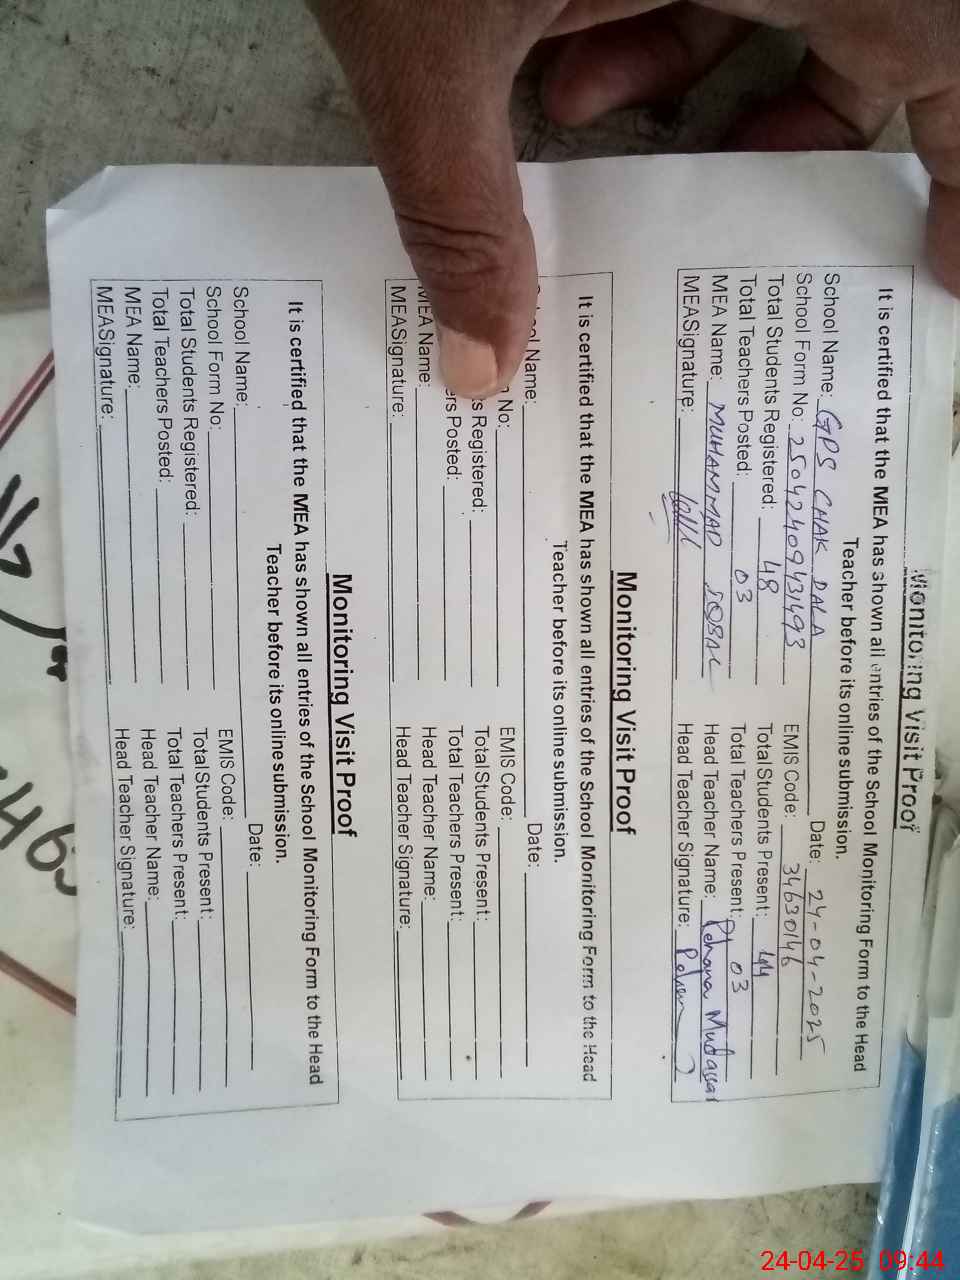 Monitoring Visit Proof
It is certified that the MEA has shown all entries of the School Monitoring Form to the Head
Teacher before its online submission.
School Name: GPS CHAK DALA Date: 24-04-2025
School Form No: 25042409431493 EMIS Code: 34630146
Total Students Registered: 48 Total Students Present: 44
Total Teachers Posted: 03 Total Teachers Present: 03
MEA Name: MUHAMMAD IQBAL Head Teacher Name: Rehana Mudassar
MEASignature: Head Teacher Signature:
Monitoring Visit Proof
It is certified that the MEA has shown all entries of the School Monitoring Form to the Head
Teacher before its online submission.
Name: Date:
No: EMIS Code:
Registered: Total Students Present:
Posted: Total Teachers Present:
MEA Name: Head Teacher Name:
MEASignature: Head Teacher Signature:
Monitoring Visit Proof
It is certified that the MEA has shown all entries of the School Monitoring Form to the Head
Teacher before its online submission.
School Name: Date:
School Form No: EMIS Code:
Total Students Registered: Total Students Present:
Total Teachers Posted: Total Teachers Present:
MEA Name: Head Teacher Name:
MEASignature: Head Teacher Signature:
24-04-25 09:44